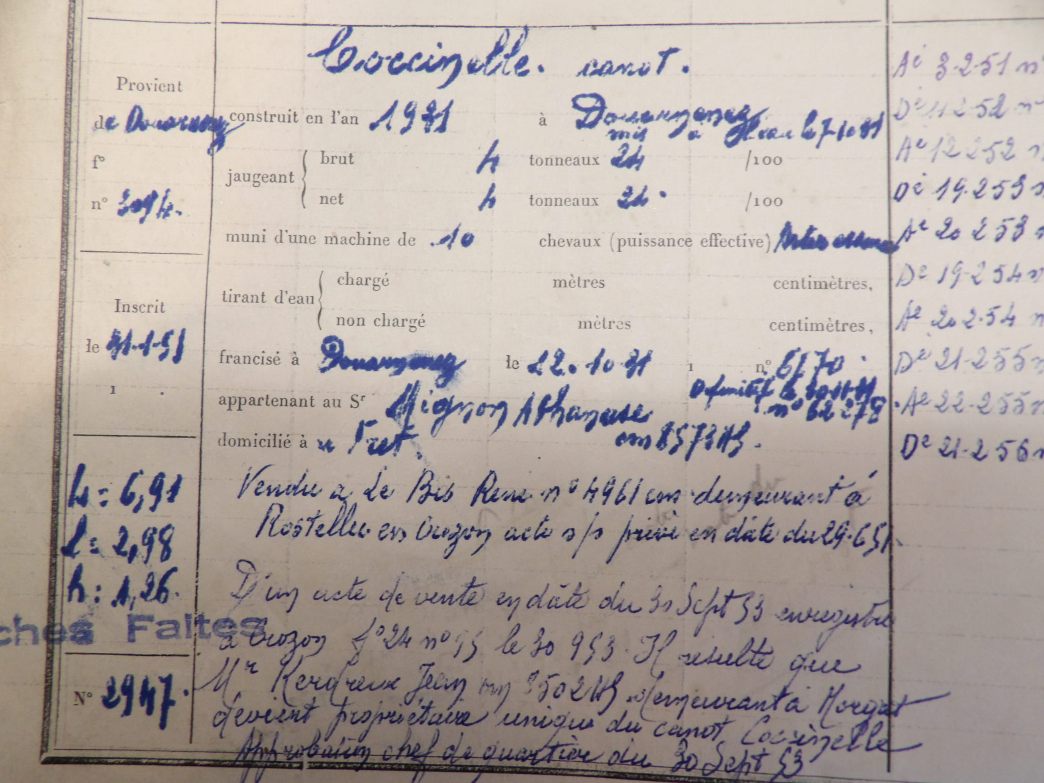 Coccinelle. canot.
Provient
de Douarnenez
f°
n° 3094.
construit en l'an 1931 à Douarnenez
mis à l'eau le 7.10.31
jaugeant brut 4 tonneaux 24 /100
net 4 tonneaux 24 /100
muni d'une machine de 10 chevaux (puissance effective)
tirant d'eau chargé mètres centimètres,
non chargé mètres centimètres,
Inscrit
le 31-1-51
1
francisé à Douarnenez le 22.10.31 n° 6170
définitif le
n° 62278
appartenant au Sr Mignon Athanase
domicilié à Le Fret.
L = 6,91
l = 2,98
h : 1,26
ches Faites
N° 2947.
Vendu à Le Bis René n° 4961 cm demeurant à
Rostellec en Crozon acte s/s privé en date du 29.6.51.
D'un acte de vente en date du 30 Sept 53 enregistré
à Crozon f° 24 n° 95 le 30 953. Il résulte que
Mr Kerdreux Jean demeurant à Morgat
devient propriétaire unique du canot Coccinelle
Approbation chef de quartier du 30 Sept 53
Aé 3-2-51 n°
Dé 11 2-52 n
Aé 12 2 52 n
Dé 19.2 53 n
Aé 20 2 53 n
Dé 19.2.54 n
Aé 20 2.54 n
Dé 21-2 55 n
Aé 22-2 55 n
Dé 21-2 56 n